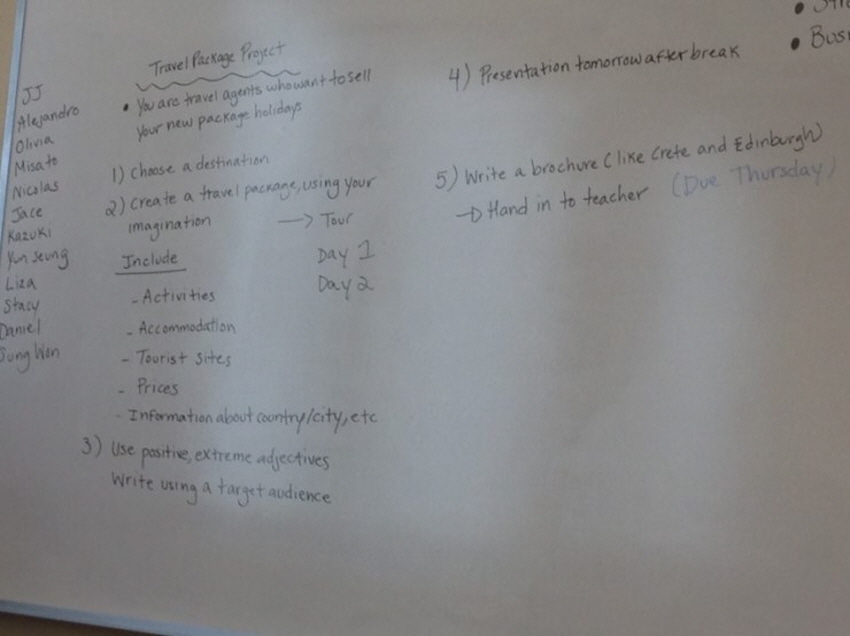 JJ
Alejandro
Olivia
Misato
Nicolas
Jace
Kazuki
Yun Seung
Liza
Stacy
Daniel
Sung Won
Travel Package Project
• You are travel agents who want to sell
your new package holidays
1) Choose a destination
2) Create a travel package, using your
imagination → Tour
Day 1
Day 2
Include
- Activities
- Accommodation
- Tourist sites
- Prices
- Information about country/city, etc
3) Use positive, extreme adjectives
Write using a target audience
4) Presentation tomorrow after break
5) Write a brochure (like Crete and Edinburgh)
→ Hand in to teacher (Due Thursday)
•
• Bus